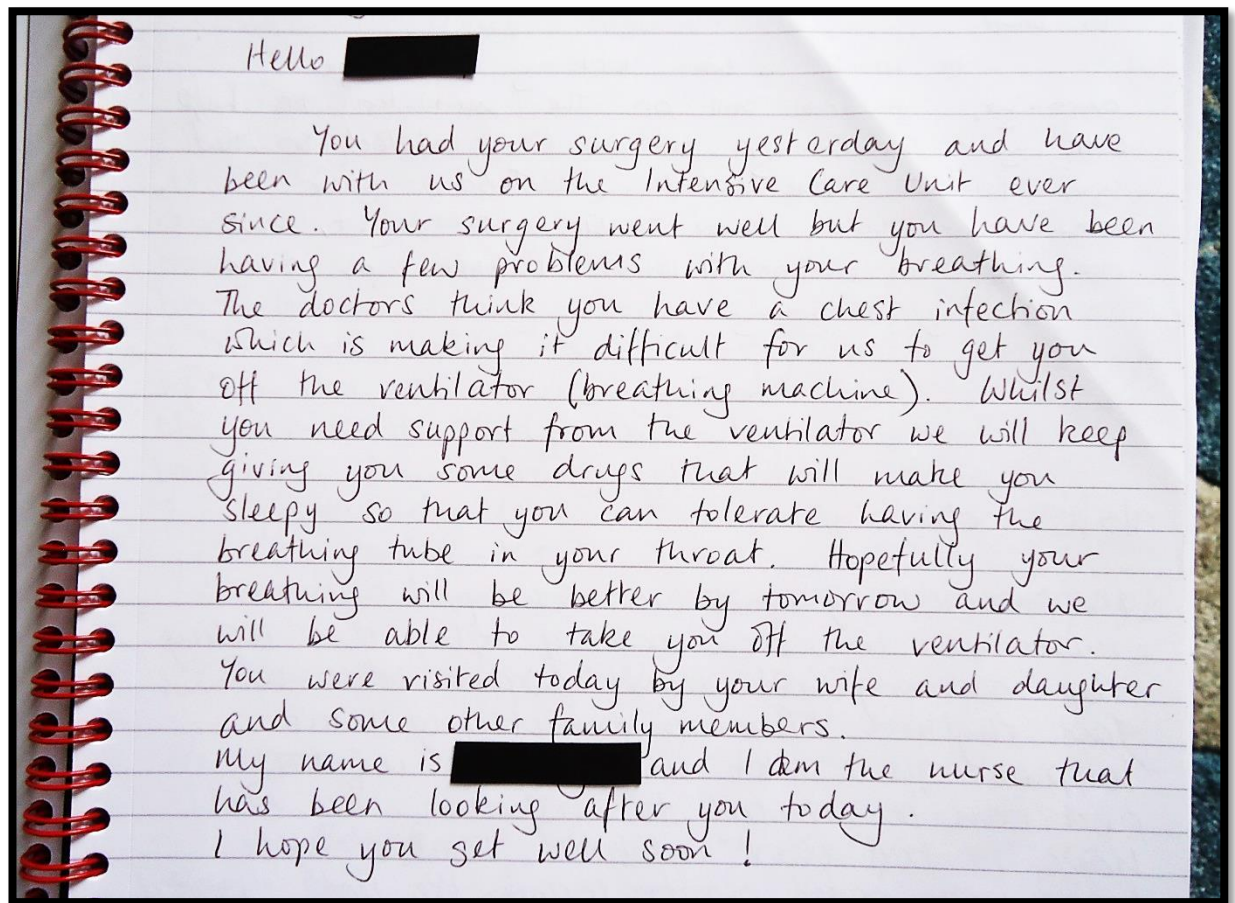 Hello
You had your surgery yesterday and have
been with us on the Intensive Care Unit ever
since. Your surgery went well but you have been
having a few problems with your breathing.
The doctors think you have a chest infection
which is making it difficult for us to get you
off the ventilator (breathing machine). Whilst
you need support from the ventilator we will keep
giving you some drugs that will make you
sleepy so that you can tolerate having the
breathing tube in your throat. Hopefully your
breathing will be better by tomorrow and we
will be able to take you off the ventilator.
You were visited today by your wife and daughter
and some other family members.
My name is and I am the nurse that
has been looking after you today.
I hope you get well soon!